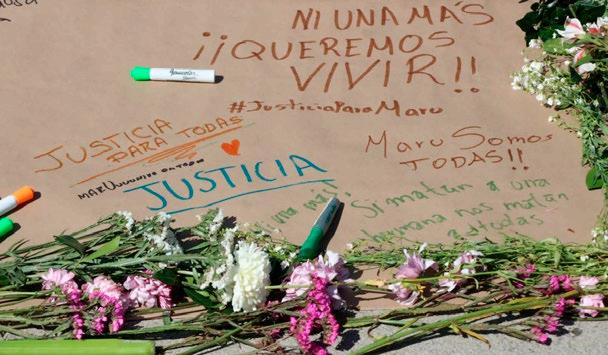 NI UNA MÁS
¡¡QUEREMOS
VIVIR!!
#JusticiaParaMaru
JUSTICIA
PARA TODAS
Maru Somos
TODAS!!
JUSTICIA
una más!
Si matan a una
hermana nos matan
a todas